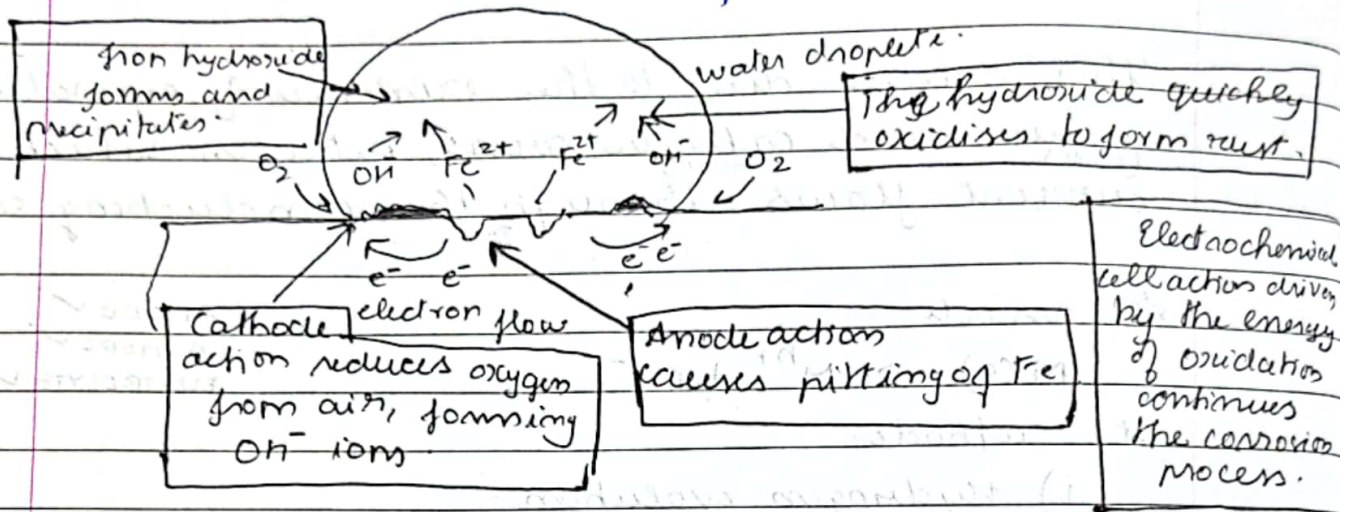 Iron hydroxide
forms and
precipitates.
water droplete.
The hydroxide quickly
oxidises to form rust.
O2
OH-
Fe2+
Fe2+
OH-
O2
e- e-
e- e-
electron flow
Cathode
action reduces oxygen
from air, forming
OH- ions
Anode action
causes pitting of Fe
Electrochemical
cell action driven
by the energy
of oxidation
continues
the corrosion
process.